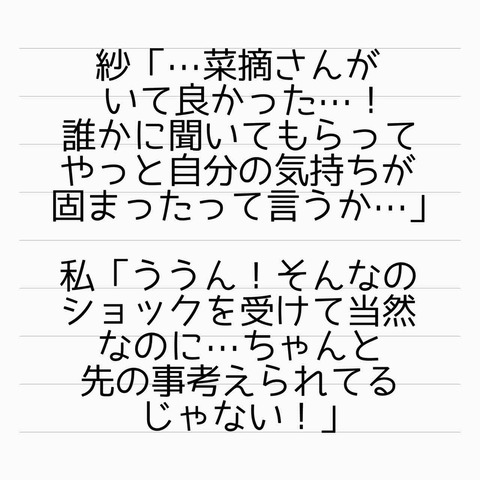 紗「…菜摘さんが
いて良かった…！
誰かに聞いてもらって
やっと自分の気持ちが
固まったって言うか…」
私「ううん！そんなの
ショックを受けて当然
なのに…ちゃんと
先の事考えられてる
じゃない！」